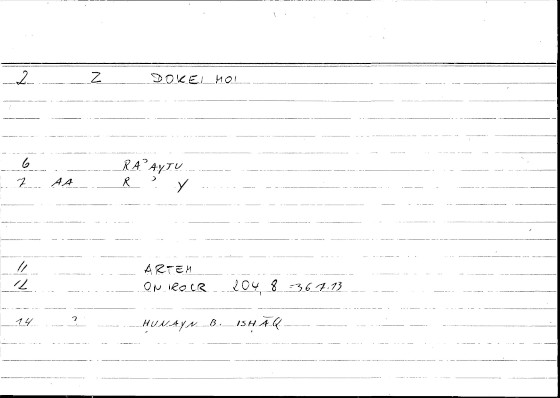 2 Z DOKEI MOI
6 RAʾAYTU
7 AA R ʾ Y
11 ARTEM
12 ONIROCR 204, 8 = 367.13
14 ʾ ḤUNAYN B. ISḤĀQ